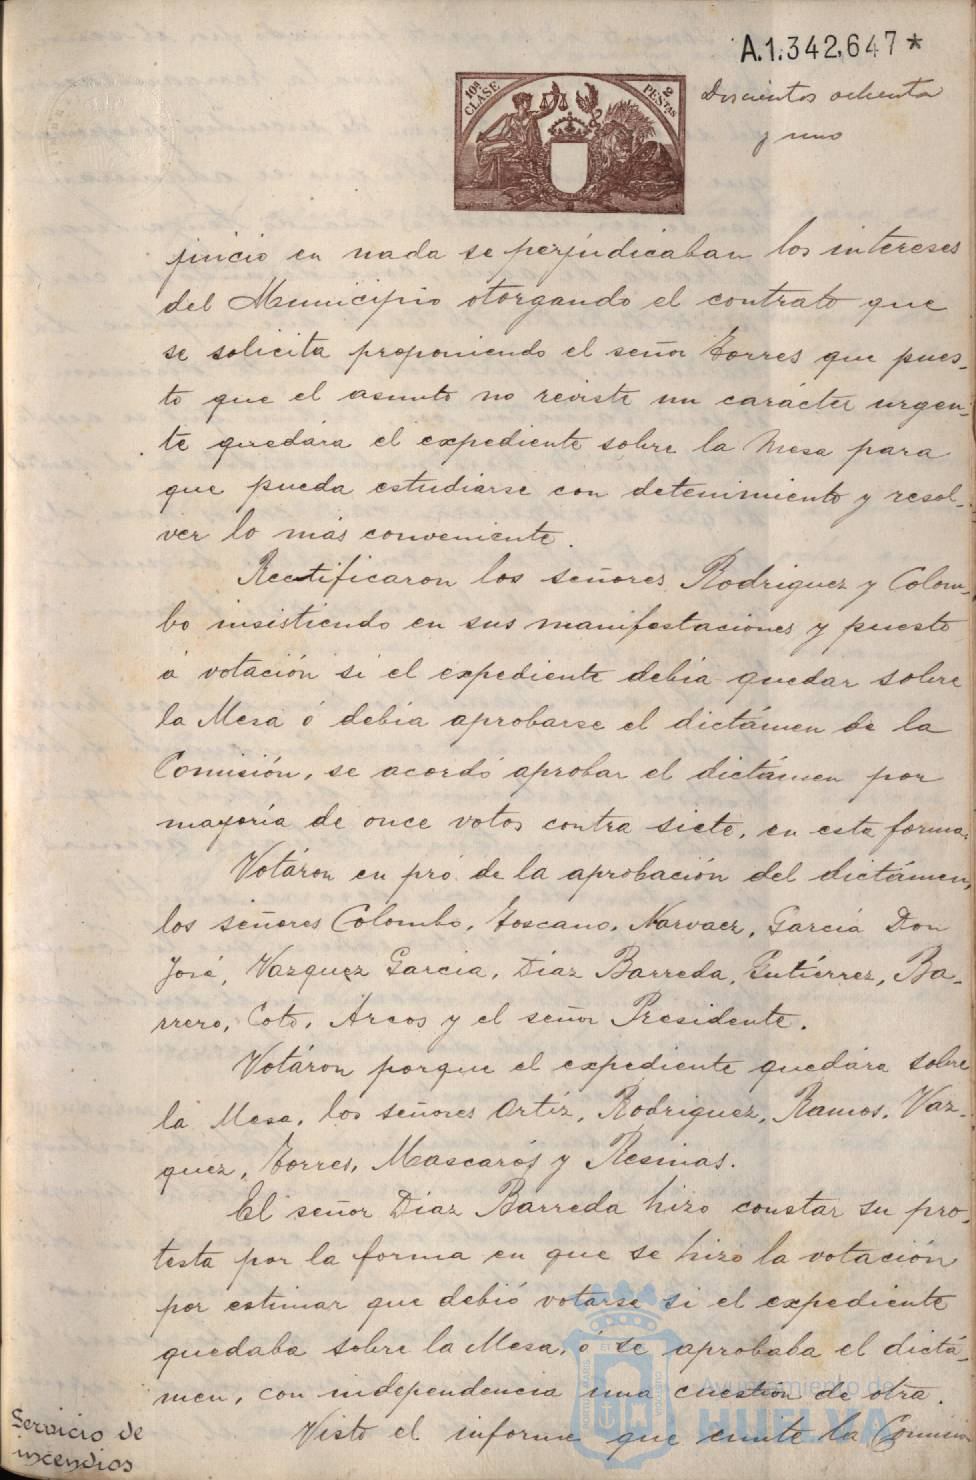 A.1.342,647*
10ª CLASE
2 PESTAS
Doscientos ochenta
y uno
juicio en nada se perjudicaban los intereses
del Municipio otorgando el contrato que
se solicita proponiendo el señor Torres que pues-
to que el asunto no reviste un carácter urgen-
te quedára el expediente sobre la Mesa para
que pueda estudiarse con detenimiento y resol-
ver lo más conveniente.
Rectificaron los señores Rodriguez y Colom-
bo insistiendo en sus manifestaciones y puesto
á votación si el expediente debia quedar sobre
la Mesa ó debia aprobarse el dictámen de la
Comisión, se acordó aprobar el dictámen por
mayoría de once votos contra siete, en esta forma:
Votáron en pró de la aprobación del dictámen,
los señores Colombo, Toscano, Narvaez, García Don
José, Vazquez Garcia, Diaz Barreda, Gutiérrez, Ba-
rrero, Coto, Arcos y el señor Presidente.
Votáron porque el expediente quedára sobre
la Mesa, los señores Ortíz, Rodriguez, Ramos, Vaz-
quez, Torres, Mascarós y Resinas.
El señor Diaz Barreda hizo constar su pro-
testa por la forma en que se hizo la votación
por estimar que debió votarse si el expediente
quedaba sobre la Mesa, ó se aprobaba el dictá-
men, con independencia una cuestión de otra.
Servicio de
incendios
Visto el informe que emite la Comision
Ayuntamiento de
HUELVA